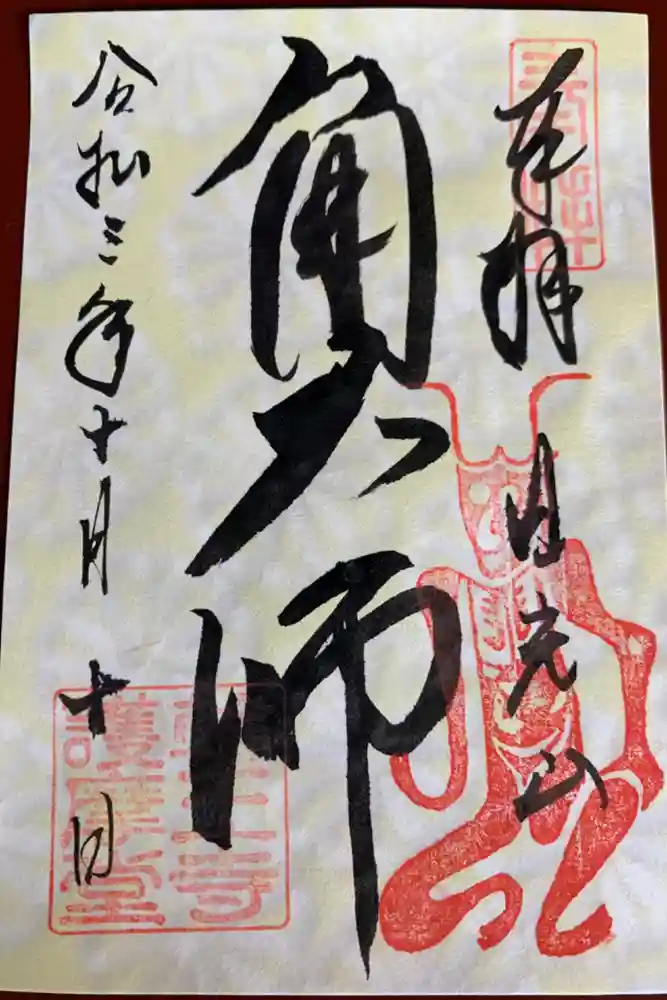 奉拝 日光山
角大師
令和三年十月十日
輪王寺
護摩堂